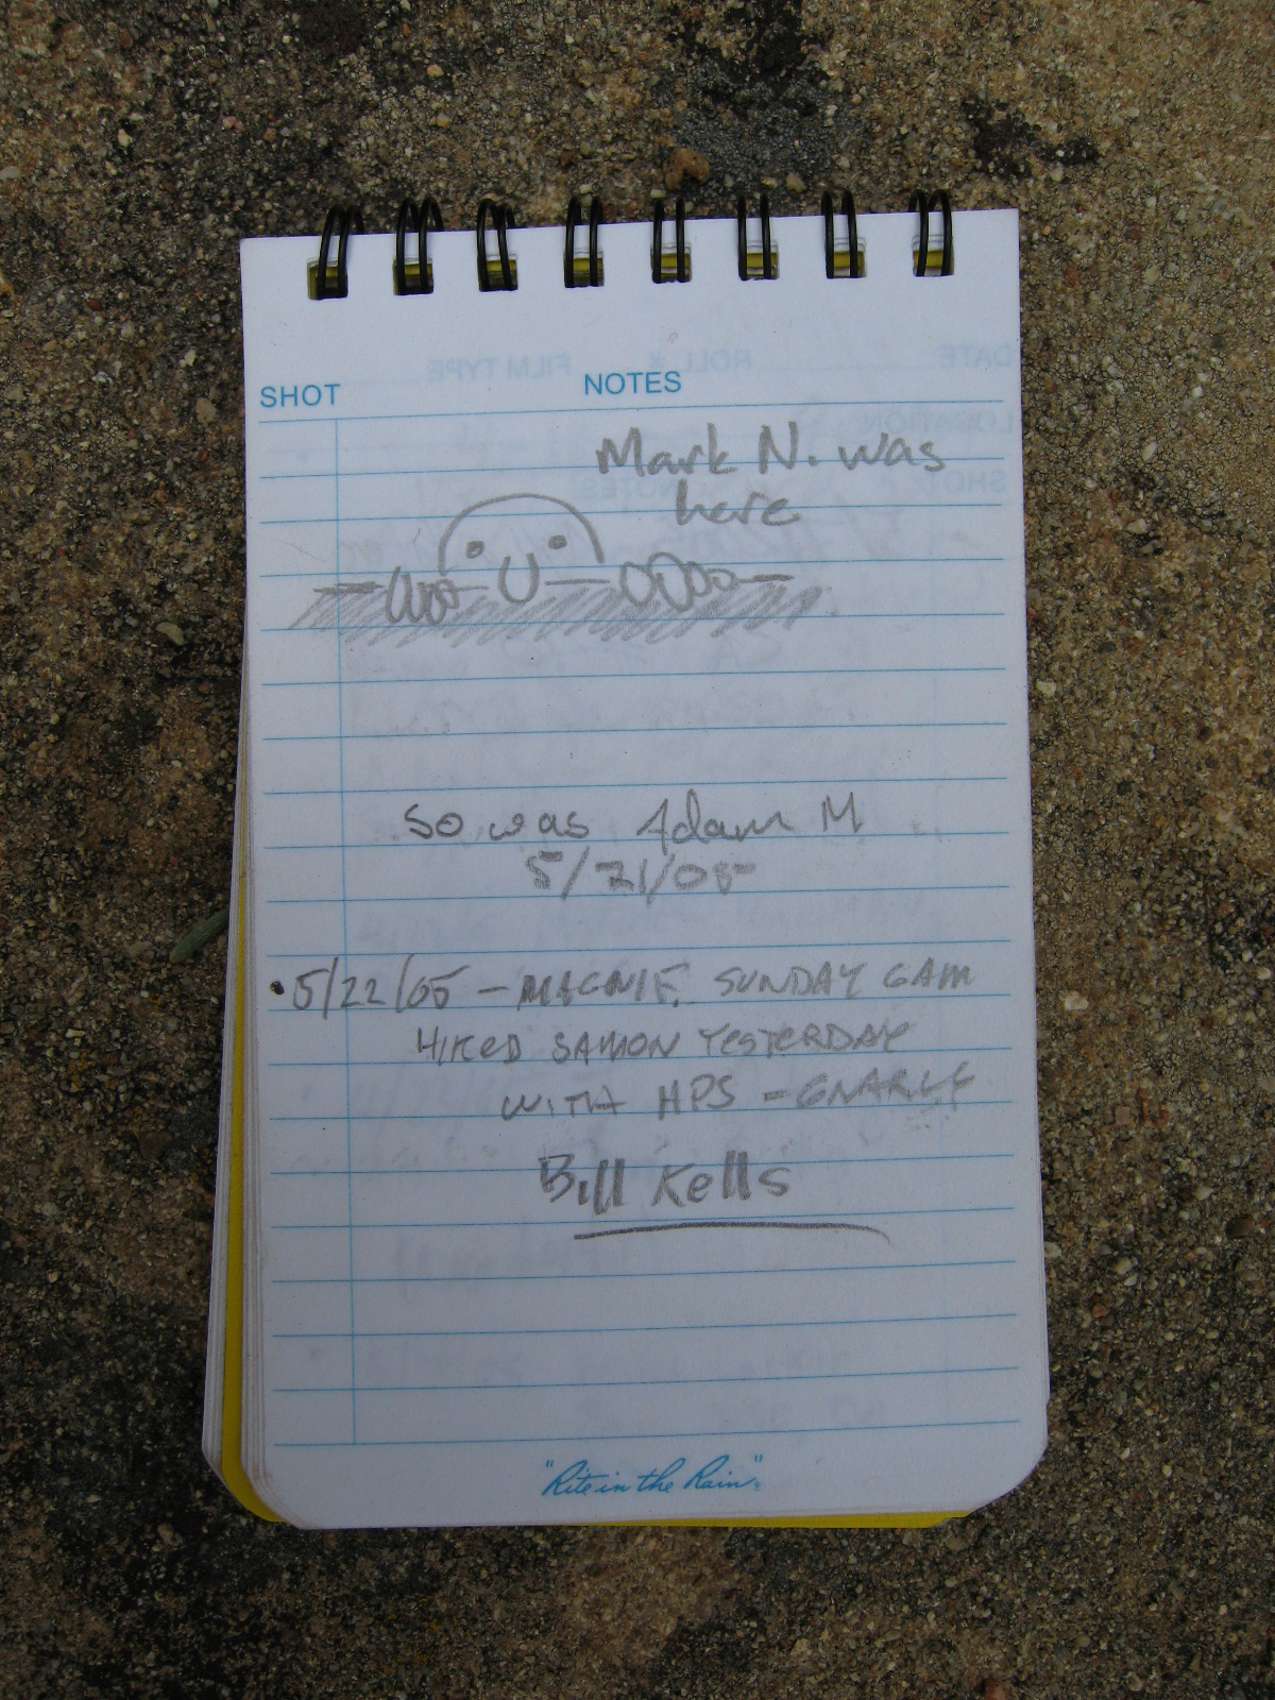 SHOT NOTES
Mark N. was
here
So was Adam M
5/21/05
• 5/22/05 – MAGNIF. SUNDAY GAM
HIKED SAMON YESTERDAY
WITH HPS – GNARLY
Bill Kells
"Rite in the Rain"